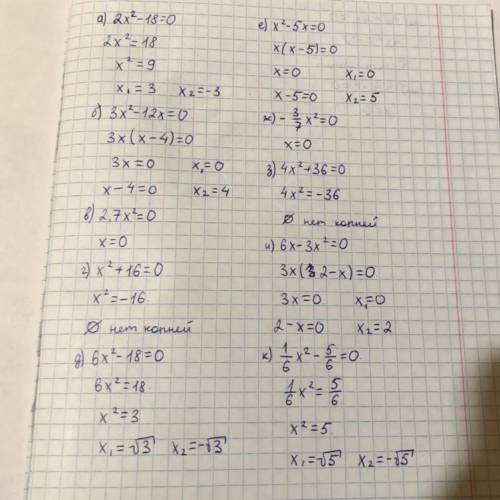 а) 2x²-18=0
2x²=18
x²=9
x₁=3 x₂=-3
б) 3x²-12x=0
3x(x-4)=0
3x=0 x₁=0
x-4=0 x₂=4
в) 2,7x²=0
x=0
г) x²+16=0
x²=-16
∅ нет корней
д) 6x²-18=0
6x²=18
x²=3
x₁=√3 x₂=-√3
е) x²-5x=0
x(x-5)=0
x=0 x₁=0
x-5=0 x₂=5
ж) -3/7 x²=0
x=0
з) 4x²+36=0
4x²=-36
∅ нет корней
и) 6x-3x²=0
3x(2-x)=0
3x=0 x₁=0
2-x=0 x₂=2
к) 1/6 x² - 5/6 =0
1/6 x² = 5/6
x²=5
x₁=√5 x₂=-√5